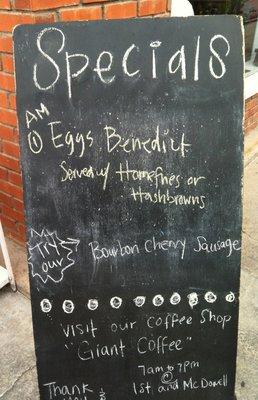 Specials
AM
① Eggs Benedict
Served w/ Homefries or
Hashbrowns
TRY
our
Bourbon Cherry Sausage
Visit our coffee Shop
"Giant Coffee"
7am to 7pm
@
1st and McDowell
Thank